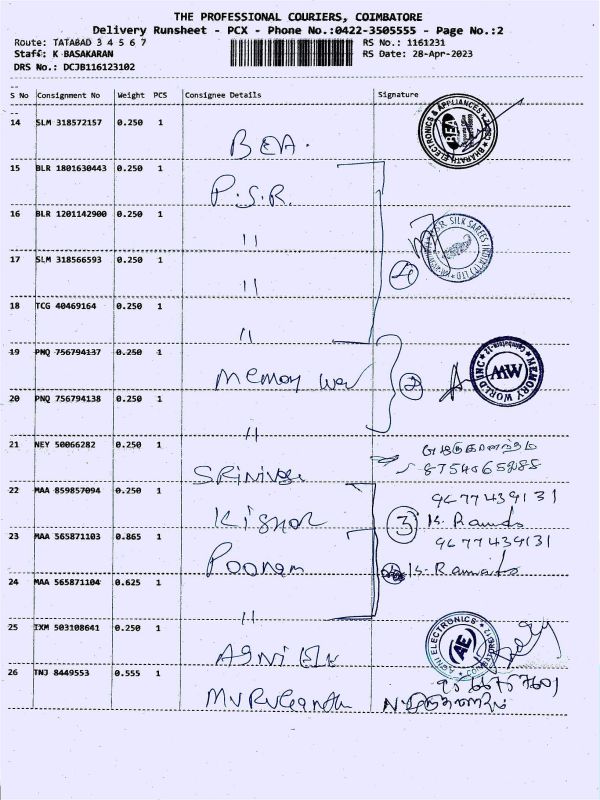 THE PROFESSIONAL COURIERS, COIMBATORE
Delivery Runsheet - PCX - Phone No.:0422-3505555 - Page No.:2
Route: TATABAD 3 4 5 6 7
RS No.: 1161231
Staff: K BASAKARAN
RS Date: 28-Apr-2023
DRS No.: DCJB116123102
S No Consignment No Weight PCS Consignee Details Signature
14 SLM 318572157 0.250 1
BEA.
BHARATH ELECTRONICS & APPLIANCES
BEA
15 BLR 1801630443 0.250 1
P.S.R.
16 BLR 1201142900 0.250 1
"
SILK SAREES INDIA (P) LTD
4
17 SLM 318566593 0.250 1
"
18 TCG 40469164 0.250 1
"
19 PNQ 756794137 0.250 1
Memory
2
MEMORY WORLD INC
MW
20 PNQ 756794138 0.250 1
"
21 NEY 50066282 0.250 1
22 MAA 859857094 0.250 1
Kishor
9677439131
3
23 MAA 565871103 0.865 1
Poonam
9677439131
24 MAA 565871104 0.625 1
"
25 IXM 503108641 0.250 1
ELECTRONICS
AE
26 TNJ 8449553 0.555 1